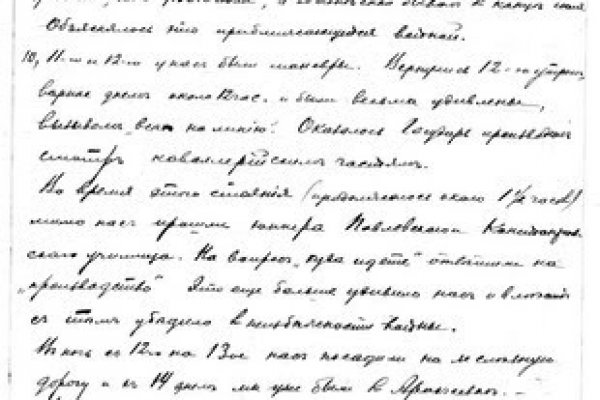 Объяснялось это приближающейся войной.
10, 11-го и 12-го у нас были маневры. Вернулись 12-го утром,
вернее днем около 12 час. и были весьма удивлены,
вызовом "всех на линию". Оказалось Государь производит
смотр кавалерийским частям.
Во время этого стояния (продолжалось около 1 1/2 часов)
мимо нас прошли юнкера Павловского
ского училища. На вопрос "куда идете" отвечали на
"производство" Это еще больше удивило нас и
с тем убедило в неизбежности войны.
В ночь с 12го на 13ое нас посадили на железную
дорогу и 14 днем мы уже были в